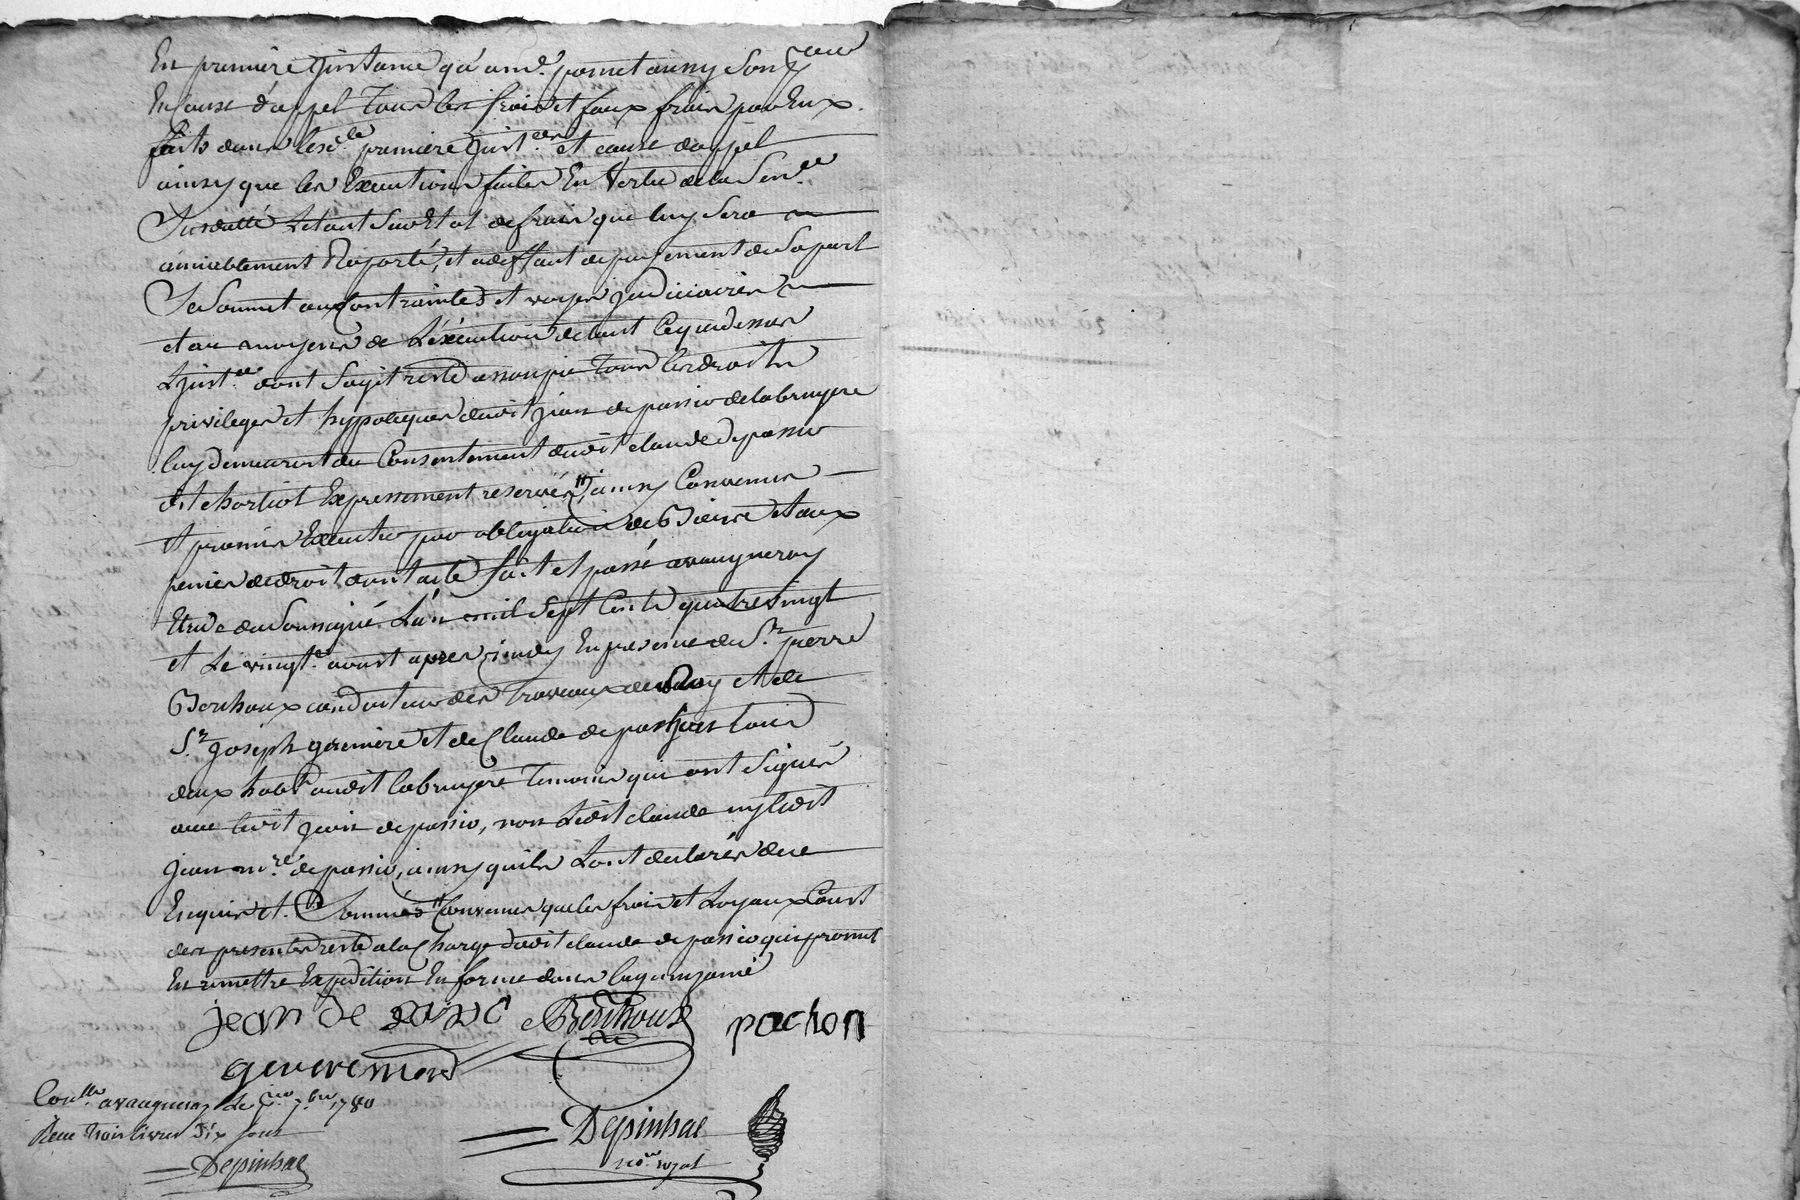 En premiere Instance qu'a md. promet aussy
En cause d'appel Tous les frais et faux frais par Eux
faits dans lesd.e premiere Inst.ces et cause dappel
ainsy que les Executions faites En vertu de la Sen.ce
Susdatté Le tout suivt Etat de frais que luy sera
amiablement Raporté, et a deffaut de payement de sa part
Se Soumet aux Contraintes et voyes judiciaires
et au moyens de L'éxécution de tout Ce que dessus
L'jnst.ce dont Sagit reste assoupie Tous les droits
privileges et hypoteques dudit jean de passio de labruyere
luy demeurent du Consentement dudit claude depassio
dit chortiot Expressement reservés, ainsy Convenus
et promis Executer par obligation de Biens et aux
peines de droit dont acte fait et passé avaugneray
Etude du Soussigné. L'an mil Sept Cents quatrevingt
et Le vingt aoust apres midy En presence du S.r pierre
Berthoux conducteur des Travaux du Roy et de
S.r joseph et de Claude de tous
deux hab. audit labruyere Temoins qui ont Signés
avec ledit jean depassio, non Ledit claude ny ledit
jean m.re depassio, ainsy quils Lont declarés de ce
Enquis et Sommés Convenu que les frais et Loyaux Couts
des presentes reste a la Charge dudit claude de passio qui promet
En remettre Expedition En forme dans la quinzaine
jean de Berthoux pachon
Con.lle avaugneray Le 7.bre 1780
Recu trois livres Dix sous
Depinhac
Depinhac
no.re royal